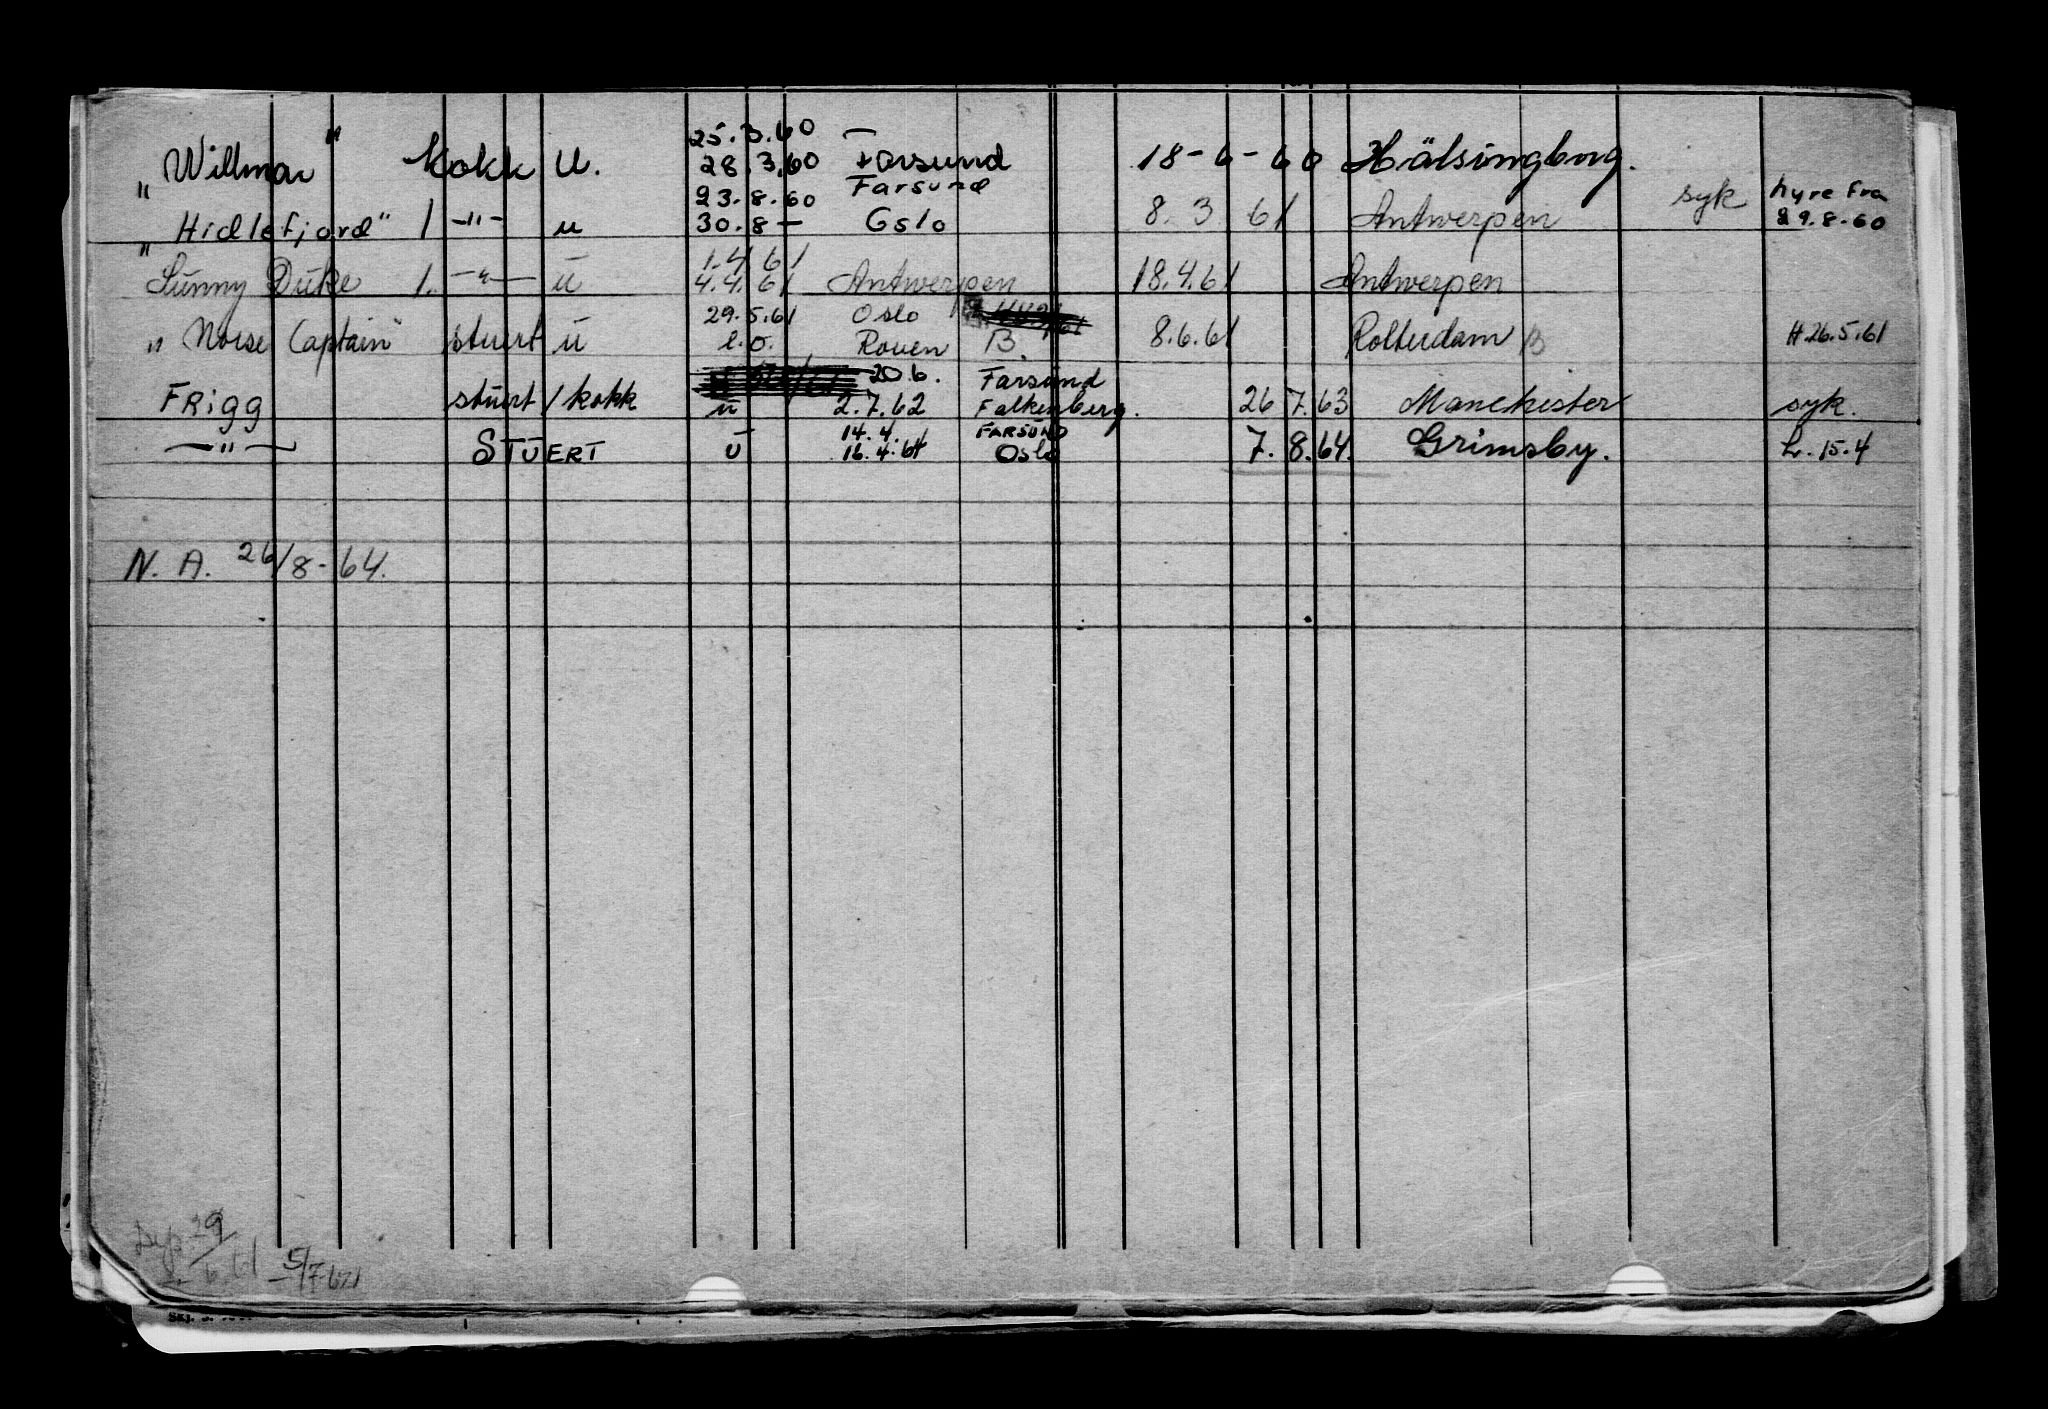 25.3.60
„Willmar" Kokk U. 28.3.60 Farsund 18-6-60 Hälsingborg.
23.8.60 Farsund hyre fra
„Hidlefjord" 1 -"- u 30.8- Oslo 8. 3 61 Antwerpen syk 29.8-60
1.4 61
Sunny Duke 1. -"- u 4.4.61 Antwerpen 18.4.61 Antwerpen
29.5.61 Oslo
„Norse Captain" stuert u l.o. Rouen B. 8.6.61 Rotterdam B H.26.5.61
20.6. Farsund
FRigg stuert/kokk u 2.7.62 Falkenberg. 26 7.63 Manchester syk.
14.4. FARSUND
-"- STUERT u 16.4.64 Oslo 7.8.64. Grimsby. h.15.4
N. A. 26/8-64.
29/6.61 5/7-62